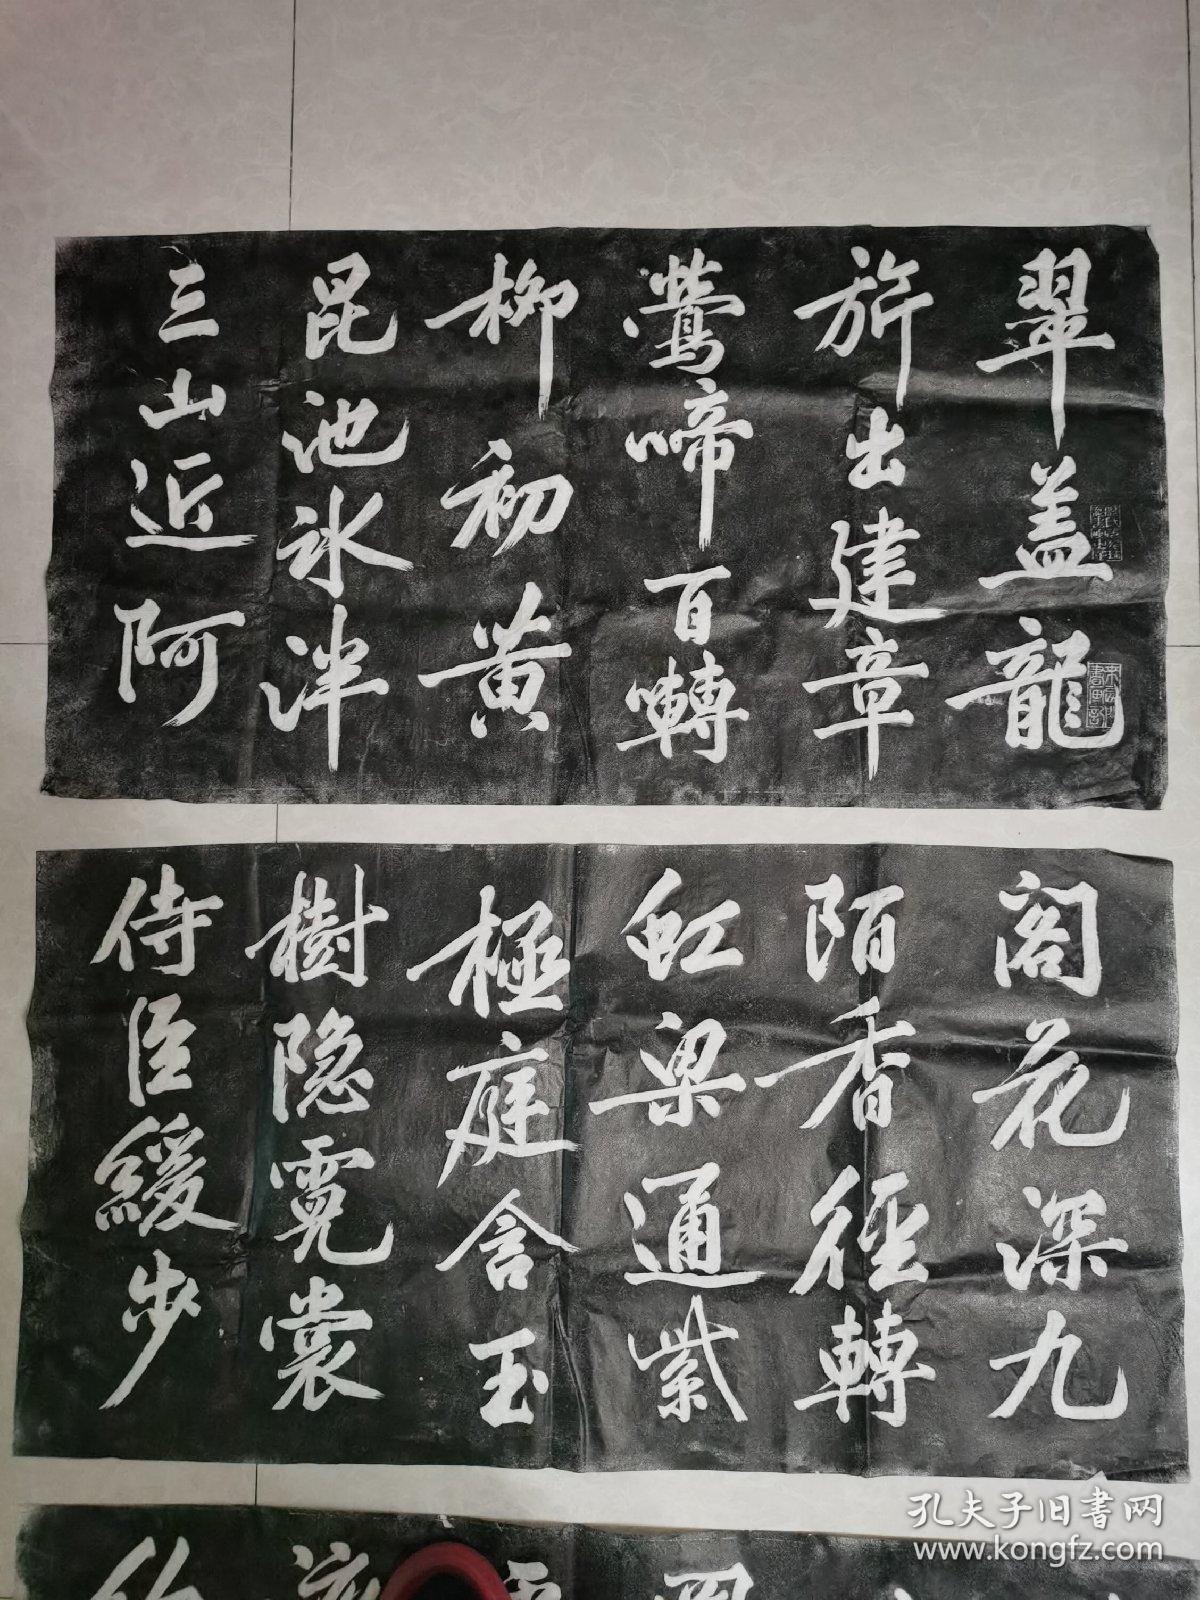 翠盖龍
旂出建章
鶯啼百囀
柳初黄
昆池冰泮
三山近阿
阁花深九
陌香徑轉
虹梁通紫
極庭含玉
樹隐霓裳
侍臣緩步
孔夫子旧書网
www.kongfz.com